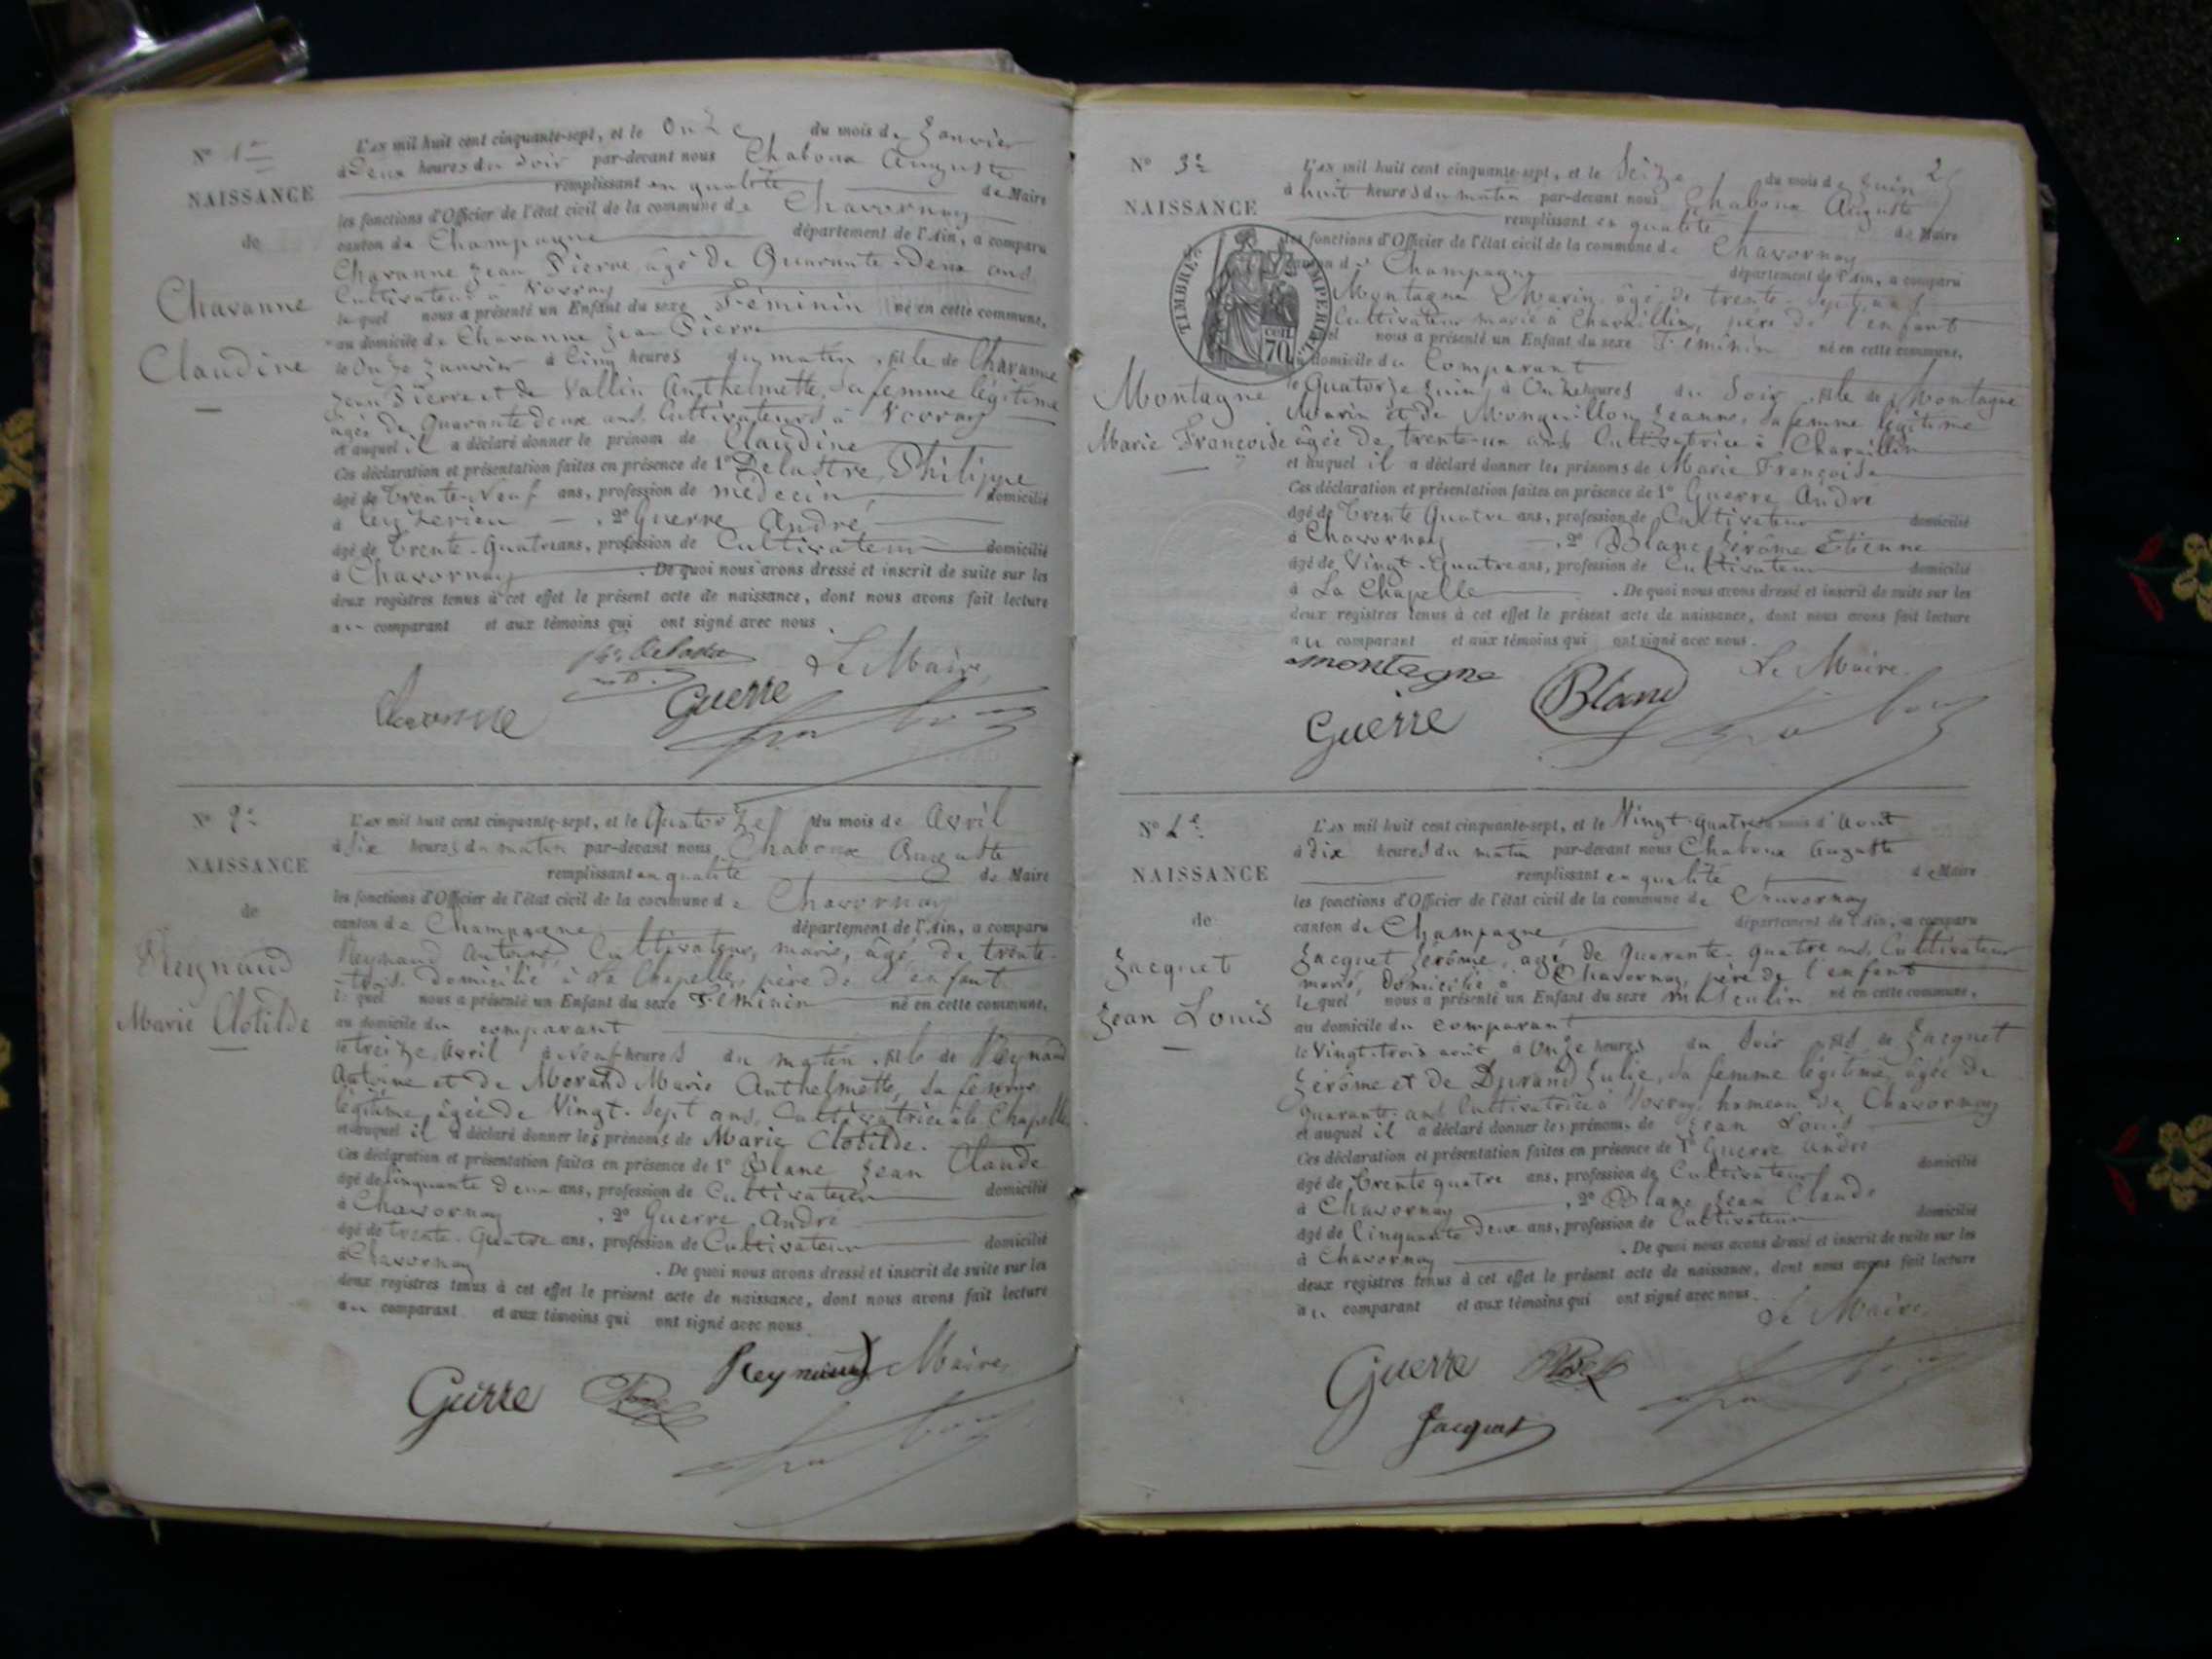 N° 1er
NAISSANCE
de
Chavanne
Claudine
L'an mil huit cent cinquante-sept, et le Onze du mois de Janvier
à Deux heures du soir par-devant nous Chaboux Auguste
remplissant en qualité de Maire
les fonctions d'Officier de l'état civil de la commune de Chavornay
canton de Champagne département de l'Ain, a comparu
Chavanne Jean Pierre âgé de Quarante-Deux ans
Cultivateur à Vovray
lequel nous a présenté un Enfant du sexe Féminin né en cette commune,
au domicile de Chavanne Jean Pierre
le Onze Janvier à Cinq heures du matin, fille de Chavanne
Jean Pierre et de Vallin Anthelmette, sa femme légitime
âgés de Quarante deux ans Cultivateurs à Vovray
et auquel il a déclaré donner le prénom de Claudine
Ces déclaration et présentation faites en présence de 1° Delastre Philippe
âgé de trente-Neuf ans, profession de médecin, domicilié
à, 2° Guerre André
âgé de Trente-Quatre ans, profession de Cultivateur domicilié
à Chavornay. De quoi nous avons dressé et inscrit de suite sur les
deux registres tenus à cet effet le présent acte de naissance, dont nous avons fait lecture
au comparant et aux témoins qui ont signé avec nous
Le Maire,
Chavanne Guerre
N° 2e
NAISSANCE
de
Reynaud
Marie Clotilde
L'an mil huit cent cinquante-sept, et le Quatorze du mois de Avril
à Six heures du matin par-devant nous Chaboux Auguste
remplissant en qualité de Maire
les fonctions d'Officier de l'état civil de la commune de Chavornay
canton de Champagne département de l'Ain, a comparu
Reynaud Antoine Cultivateur, marié, âgé de trente-
trois domicilié à La Chapelle, père de l'enfant
lequel nous a présenté un Enfant du sexe Féminin né en cette commune,
au domicile du comparant
le treize Avril à Neuf heures du matin, fille de Reynaud
Antoine et de Morand Marie Anthelmette, sa femme
légitime, âgée de Vingt-Sept ans, Cultivatrice à la Chapelle
et auquel il a déclaré donner les prénoms de Marie Clotilde.
Ces déclaration et présentation faites en présence de 1° Blanc Jean Claude
âgé de Cinquante Deux ans, profession de Cultivateur domicilié
à Chavornay, 2° Guerre André
âgé de trente-Quatre ans, profession de Cultivateur domicilié
à Chavornay. De quoi nous avons dressé et inscrit de suite sur les
deux registres tenus à cet effet le présent acte de naissance, dont nous avons fait lecture
au comparant et aux témoins qui ont signé avec nous
Reynaud Maire,
Guerre
2
N° 3e
NAISSANCE
TIMBRE IMPERIAL
70 cen
Montagne
Marie Françoise
L'an mil huit cent cinquante-sept, et le Seize du mois de Juin
à huit heures du matin par-devant nous Chaboux Auguste
remplissant en qualité de Maire
les fonctions d'Officier de l'état civil de la commune de Chavornay
canton de Champagne département de l'Ain, a comparu
Montagne Marin âgé de trente-sept ans
Cultivateur marié à Charaillin, père de l'enfant
lequel nous a présenté un Enfant du sexe Féminin né en cette commune,
au domicile du Comparant
le Quatorze Juin à Onze heures du Soir, fille de Montagne
Marin et de Monguillon Jeanne, sa femme légitime
âgée de trente-un ans Cultivatrice à Charaillin
et auquel il a déclaré donner les prénoms de Marie Françoise
Ces déclaration et présentation faites en présence de 1° Guerre André
âgé de Trente Quatre ans, profession de Cultivateur domicilié
à Chavornay, 2° Blanc Jérôme Etienne
âgé de Vingt-Quatre ans, profession de Cultivateur domicilié
à La Chapelle. De quoi nous avons dressé et inscrit de suite sur les
deux registres tenus à cet effet le présent acte de naissance, dont nous avons fait lecture
au comparant et aux témoins qui ont signé avec nous.
montagne Blanc Le Maire.
Guerre
N° 4e
NAISSANCE
de
Jacquet
Jean Louis
L'an mil huit cent cinquante-sept, et le Vingt-quatre du mois d'Août
à dix heures du matin par-devant nous Chaboux Auguste
remplissant en qualité de Maire
les fonctions d'Officier de l'état civil de la commune de Chavornay
canton de Champagne, département de l'Ain, a comparu
Jacquet Jérôme, âgé de Quarante-quatre ans, Cultivateur
marié, domicilié à Chavornay, père de l'enfant
lequel nous a présenté un Enfant du sexe masculin né en cette commune,
au domicile du comparant
le Vingt-trois août à Onze heures du Soir, fils de Jacquet
Jérôme et de Durand Julie, sa femme légitime, âgée de
Quarante ans Cultivatrice à Vovray, hameau de Chavornay
et auquel il a déclaré donner les prénoms de Jean Louis
Ces déclaration et présentation faites en présence de 1° Guerre André
âgé de Trente quatre ans, profession de Cultivateur domicilié
à Chavornay, 2° Blanc Jean Claude
âgé de Cinquante Deux ans, profession de Cultivateur domicilié
à Chavornay. De quoi nous avons dressé et inscrit de suite sur les
deux registres tenus à cet effet le présent acte de naissance, dont nous avons fait lecture
au comparant et aux témoins qui ont signé avec nous.
Le Maire,
Guerre
Jacquet